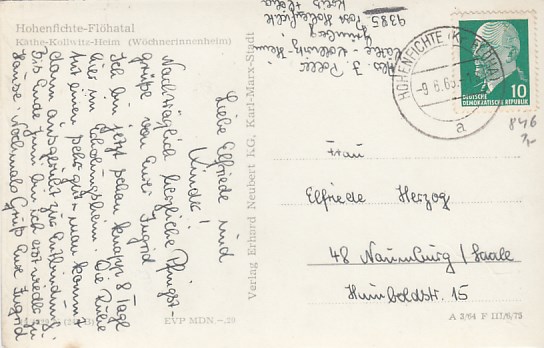 Hohenfichte-Flöhatal
Käthe-Kollwitz-Heim (Wöchnerinnenheim)
Liebe Elfriede und
Kinder!
Nachträglich herzliche Pfingst-
grüße von Eurer Ingrid
Ich bin jetzt schon knapp 8 Tage
hier im Erholungsheim. Die Ruhe
tut einem sehr gut. man kommt
dann ausgeruht zur Entbindung.
Bis Ende Juni bin ich erst wieder zu
Hause. Nochmals Grüße Eure Ingrid
Abs. I.
Käthe-Kollwitz-Heim
9385 Post Hohenfichte
Verlag Erhard Neubert KG, Karl-Marx-Stadt
EVP MDN -,20
HOHENFICHTE
-9.6.65
a
10
DEUTSCHE
DEMOKRATISCHE REPUBLIK
846
Frau
Elfriede Herzog
48 Naumburg/Saale
Humboldstr. 15
A 3/64 F III/6/75